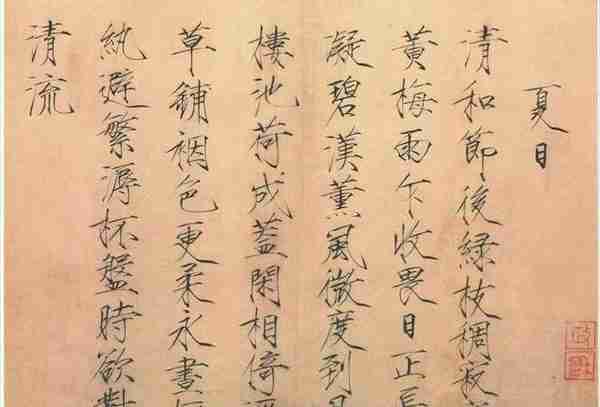 夏日
清和節後綠枝稠寂
黃梅雨乍收畏日正長
凝碧漢薰風微度到
樓池荷成蓋閑相倚
草鋪裀色更柔永晝
紈避繁溽杯盤時欲對
清流